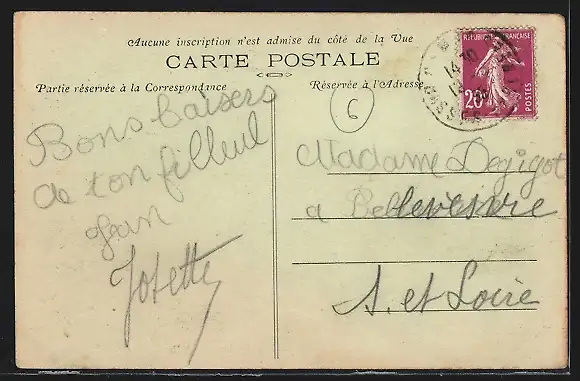 Aucune inscription n'est admise du côté de la Vue
CARTE POSTALE
Partie réservée à la Correspondance
Réservée à l'Adresse
6
Bons baisers
de ton filleul
Jean
Josette
RÉPUBLIQUE FRANÇAISE
20c
POSTES
14 30
Madame Dejigot
a Bellevesvre
S. et Loire